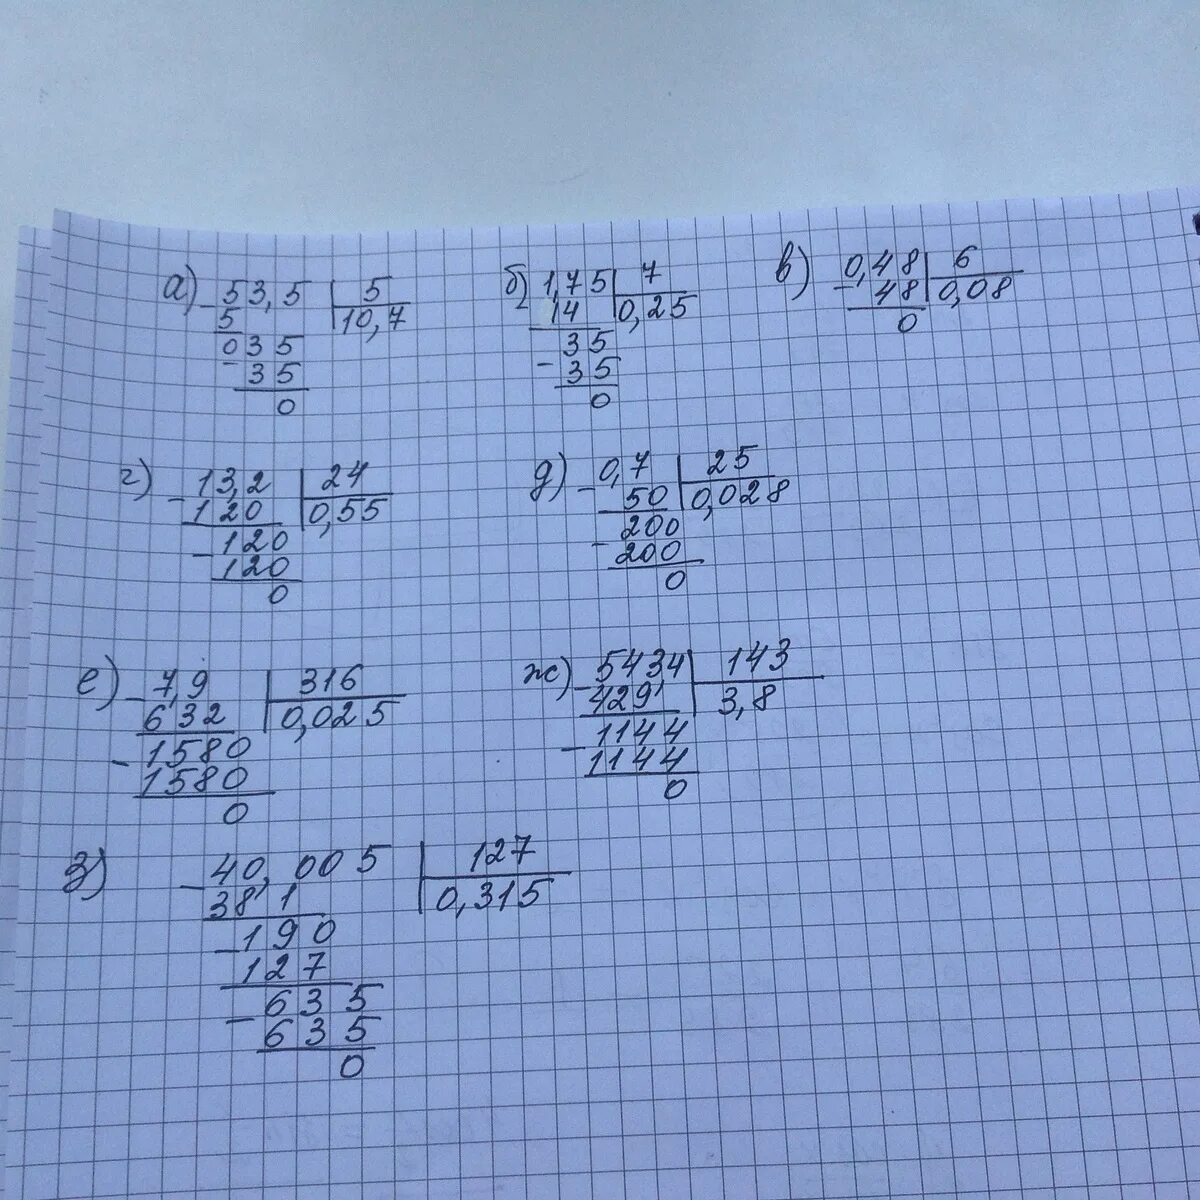 а) - 53,5 | 5
5 | 10,7
035
- 35
0
б) 1,75 | 7
14 | 0,25
35
- 35
0
в) 0,48 | 6
- 48 | 0,08
0
г) - 13,2 | 24
120 | 0,55
- 120
120
0
д) - 0,7 | 25
50 | 0,028
- 200
200
0
е) - 7,9 | 316
632 | 0,025
- 1580
1580
0
ж) - 5434 | 143
429' | 3,8
- 1144
1144
0
з) - 40,005 | 127
381 | 0,315
- 190
127
- 635
635
0